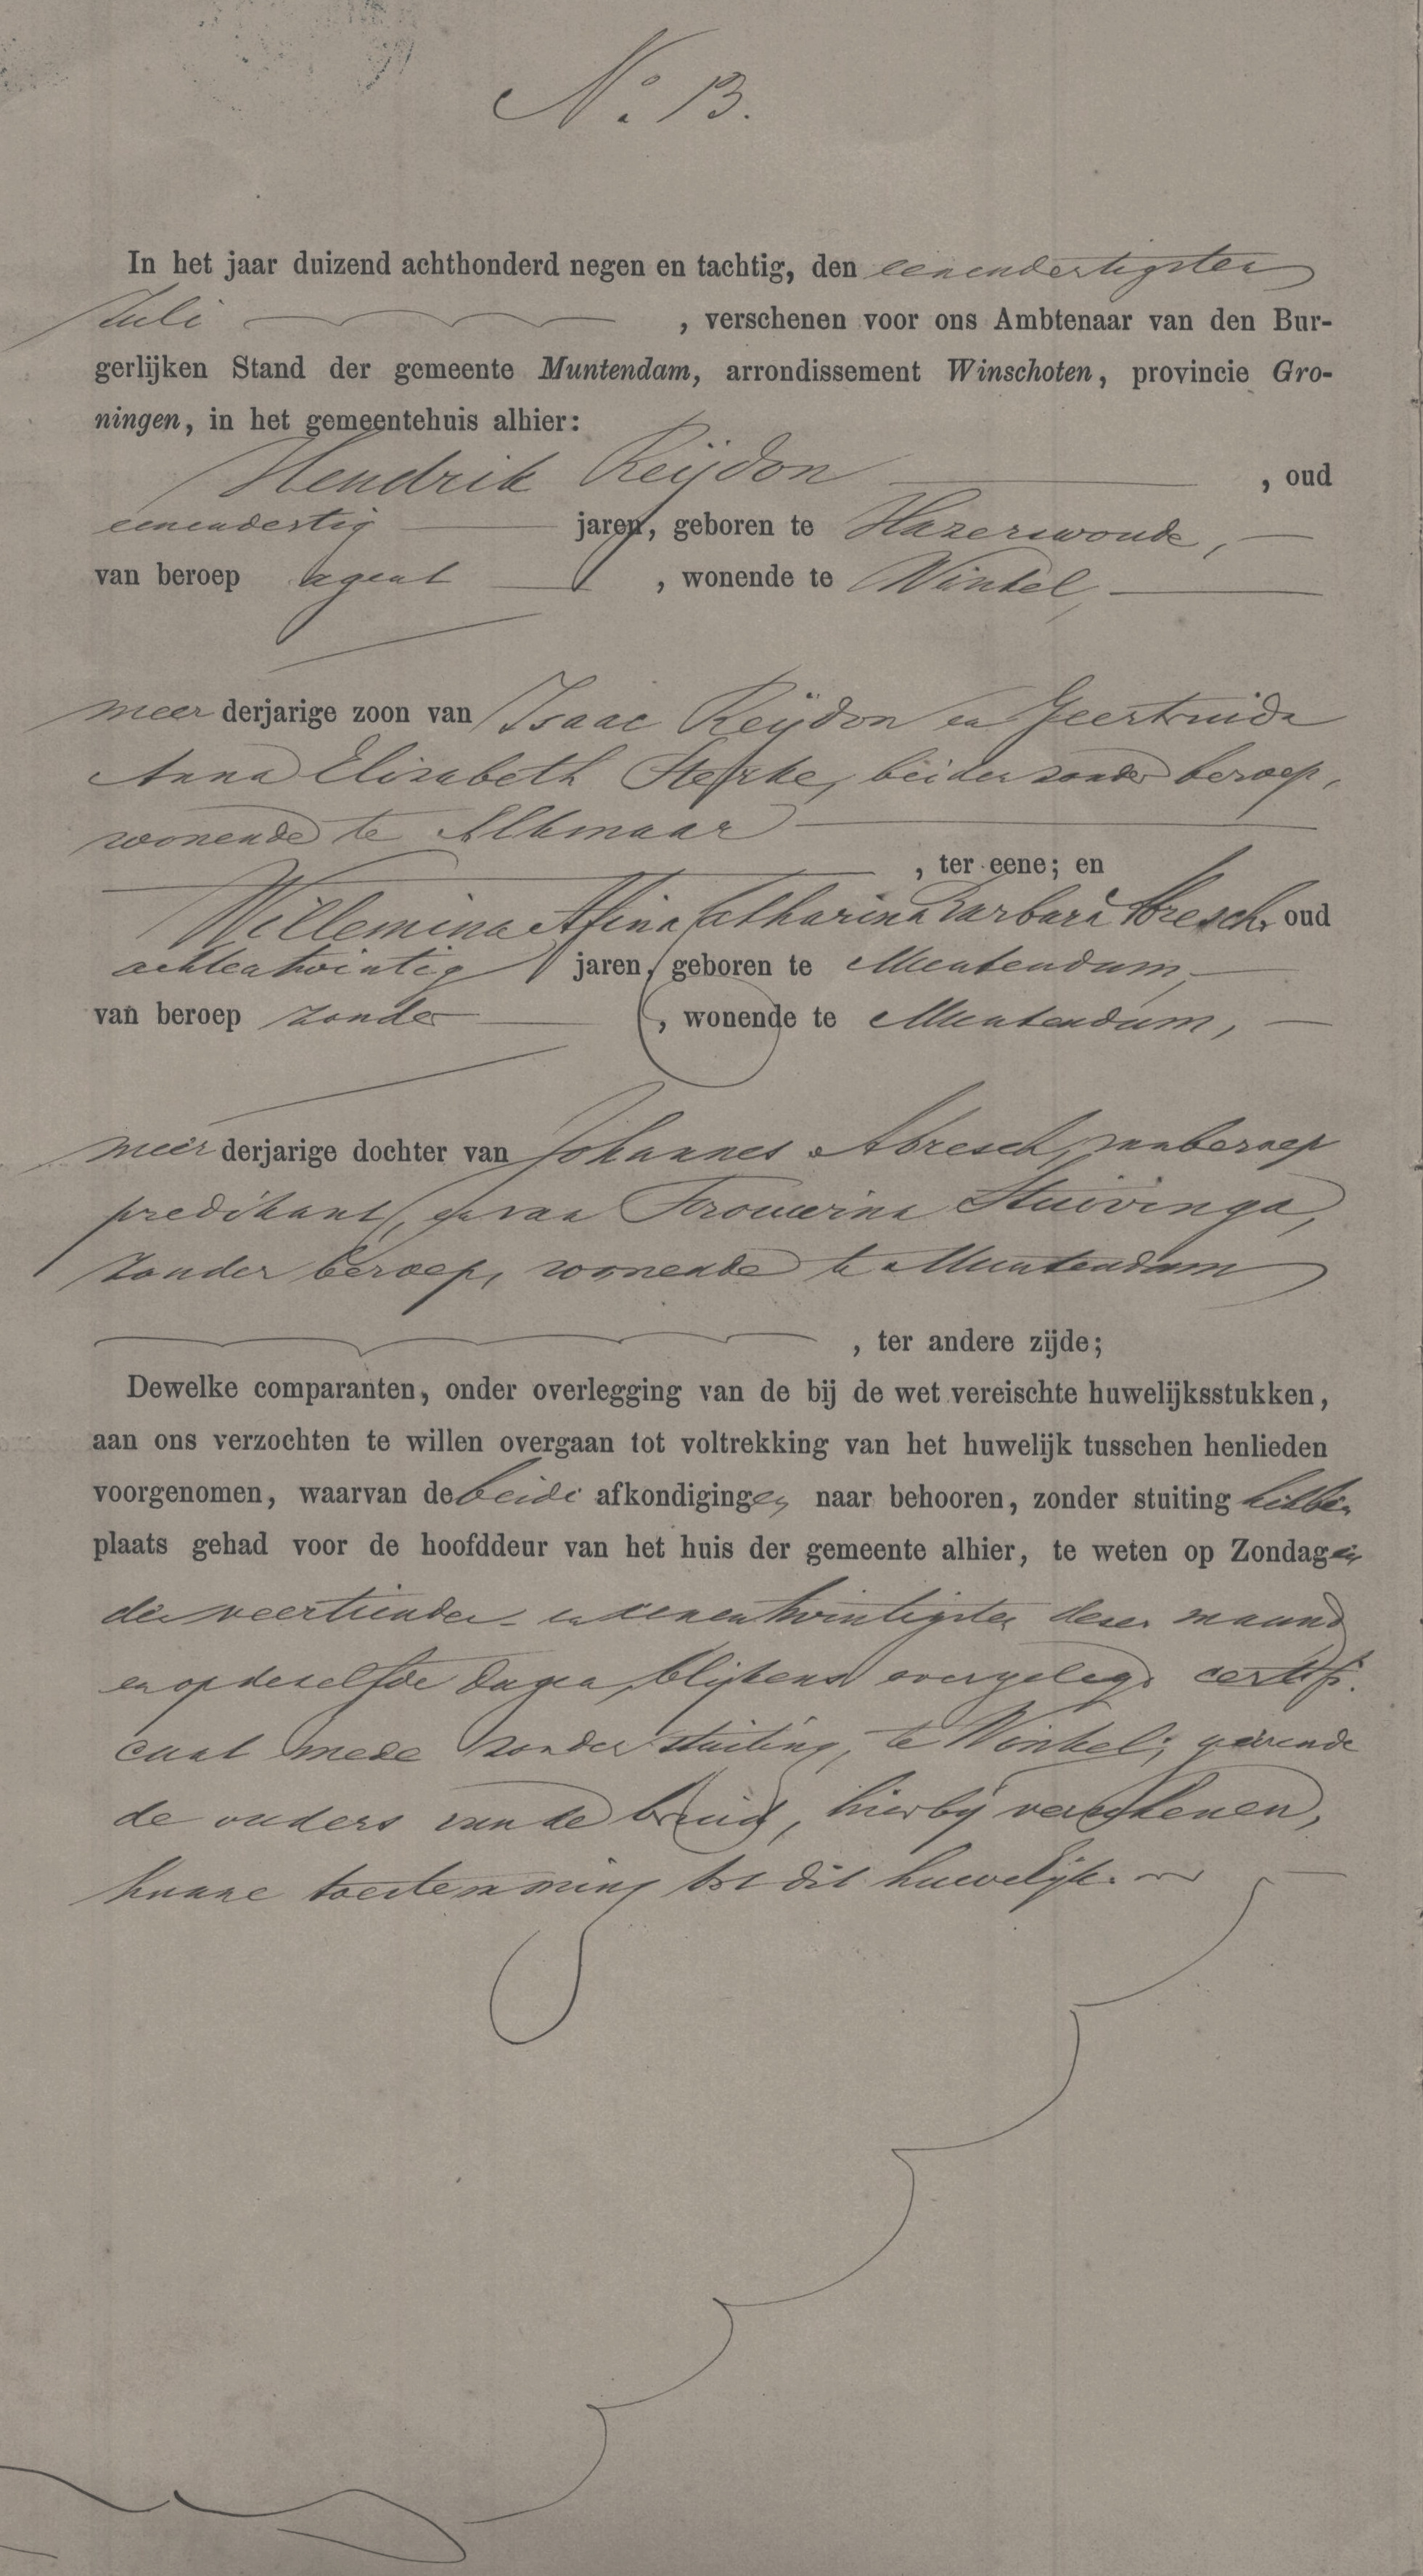 No. 13.
In het jaar duizend achthonderd negen en tachtig, den eenendertigsten
Juli, verschenen voor ons Ambtenaar van den Bur-
gerlijken Stand der gemeente Muntendam, arrondissement Winschoten, provincie Gro-
ningen, in het gemeentehuis alhier:
Hendrik Reijdon, oud
eenendertig jaren, geboren te Hazerswoude,
van beroep agent, wonende te Winkel,
meerderjarige zoon van Isaac Reijdon en Geertruida
Anna Elisabeth Sterke, beiden zonder beroep,
wonende te Alkmaar
, ter eene; en
Willemina Afina Catharina Barbara Abresch, oud
achtentwintig jaren, geboren te Muntendam,
van beroep zonder, wonende te Muntendam,
meerderjarige dochter van Johannes Abresch, van beroep
predikant, en van Frouwina Stuivinga,
zonder beroep, wonende te Muntendam
, ter andere zijde;
Dewelke comparanten, onder overlegging van de bij de wet vereischte huwelijksstukken,
aan ons verzochten te willen overgaan tot voltrekking van het huwelijk tusschen henlieden
voorgenomen, waarvan de beide afkondigingen naar behooren, zonder stuiting hebben
plaats gehad voor de hoofddeur van het huis der gemeente alhier, te weten op Zondagen
den veertienden en eenentwintigsten dezer maand
en op dezelfde dagen, blijkens overgelegd certifi-
caat mede zonder stuiting, te Winkel; gevende
de ouders van de bruid, hierbij verschenen,
hunne toestemming tot dit huwelijk.